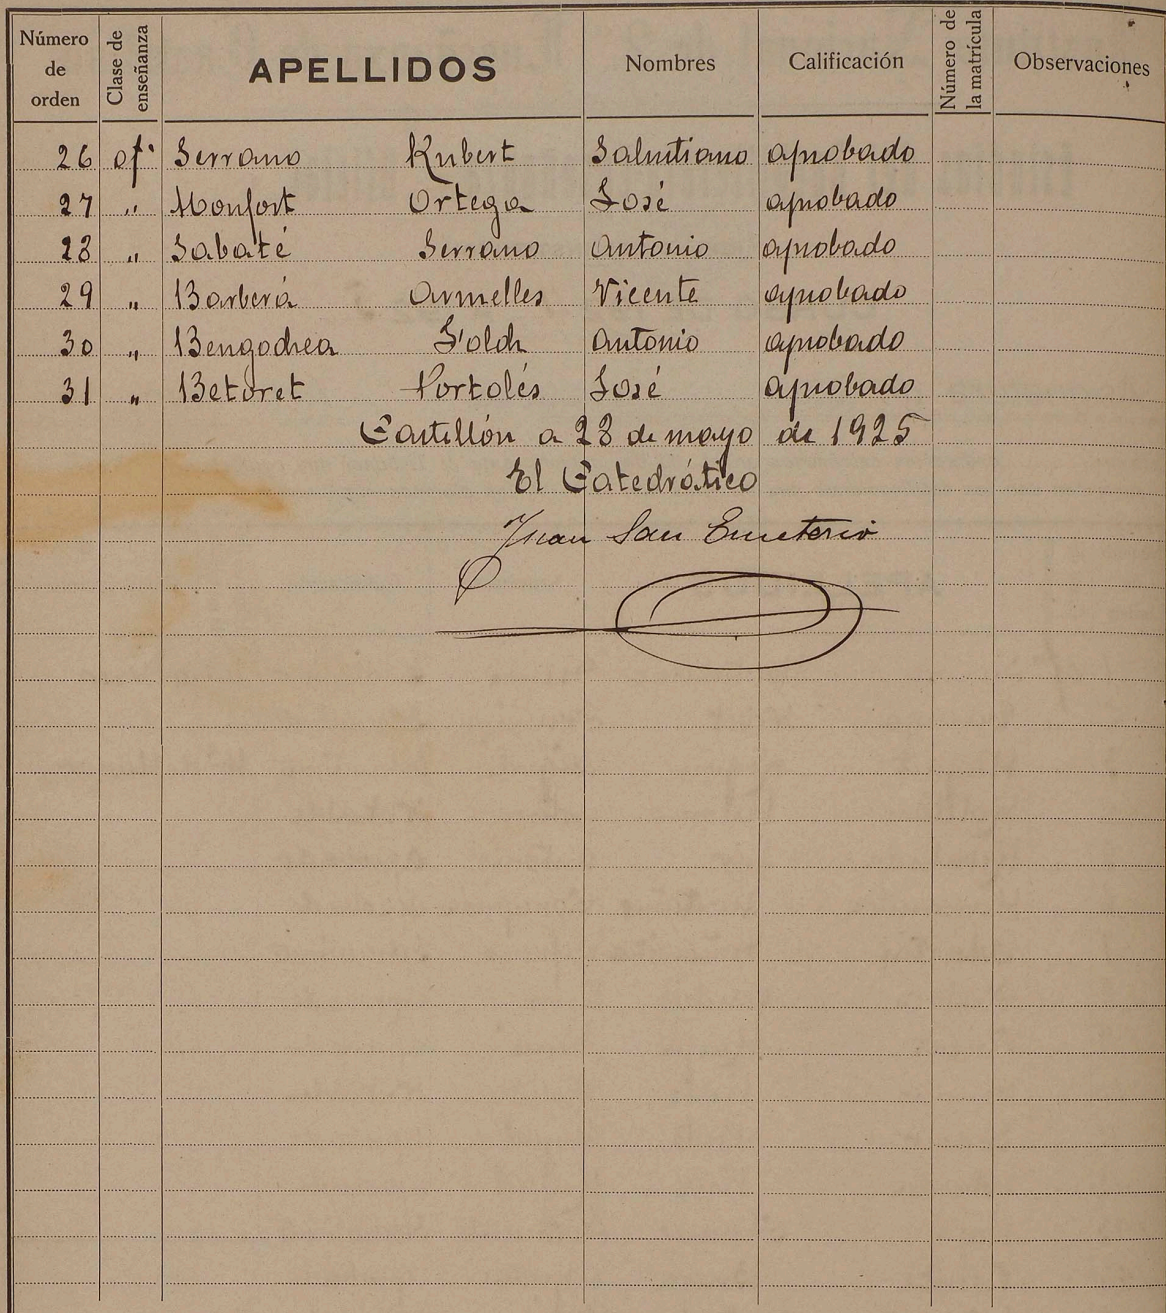 Número de orden Clase de enseñanza APELLIDOS Nombres Calificación Número de la matrícula Observaciones
26 of. Serrano Rubert Salustiano aprobado
27 " Monfort Ortega José aprobado
28 " Sabaté Serrano Antonio aprobado
29 " Barberá Armelles Vicente aprobado
30 " Bengochea Folch Antonio aprobado
31 " Betoret Portolés José aprobado
Castellón a 28 de mayo de 1925
El Catedrático
Juan San Emeterio